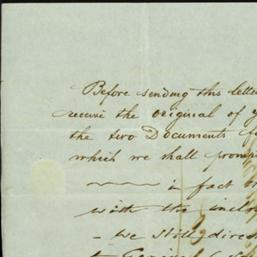 Before sending this letter
receive the original of y
the two Documents f
which we shall promp
in fact
with the inclo
- we still direc
to General